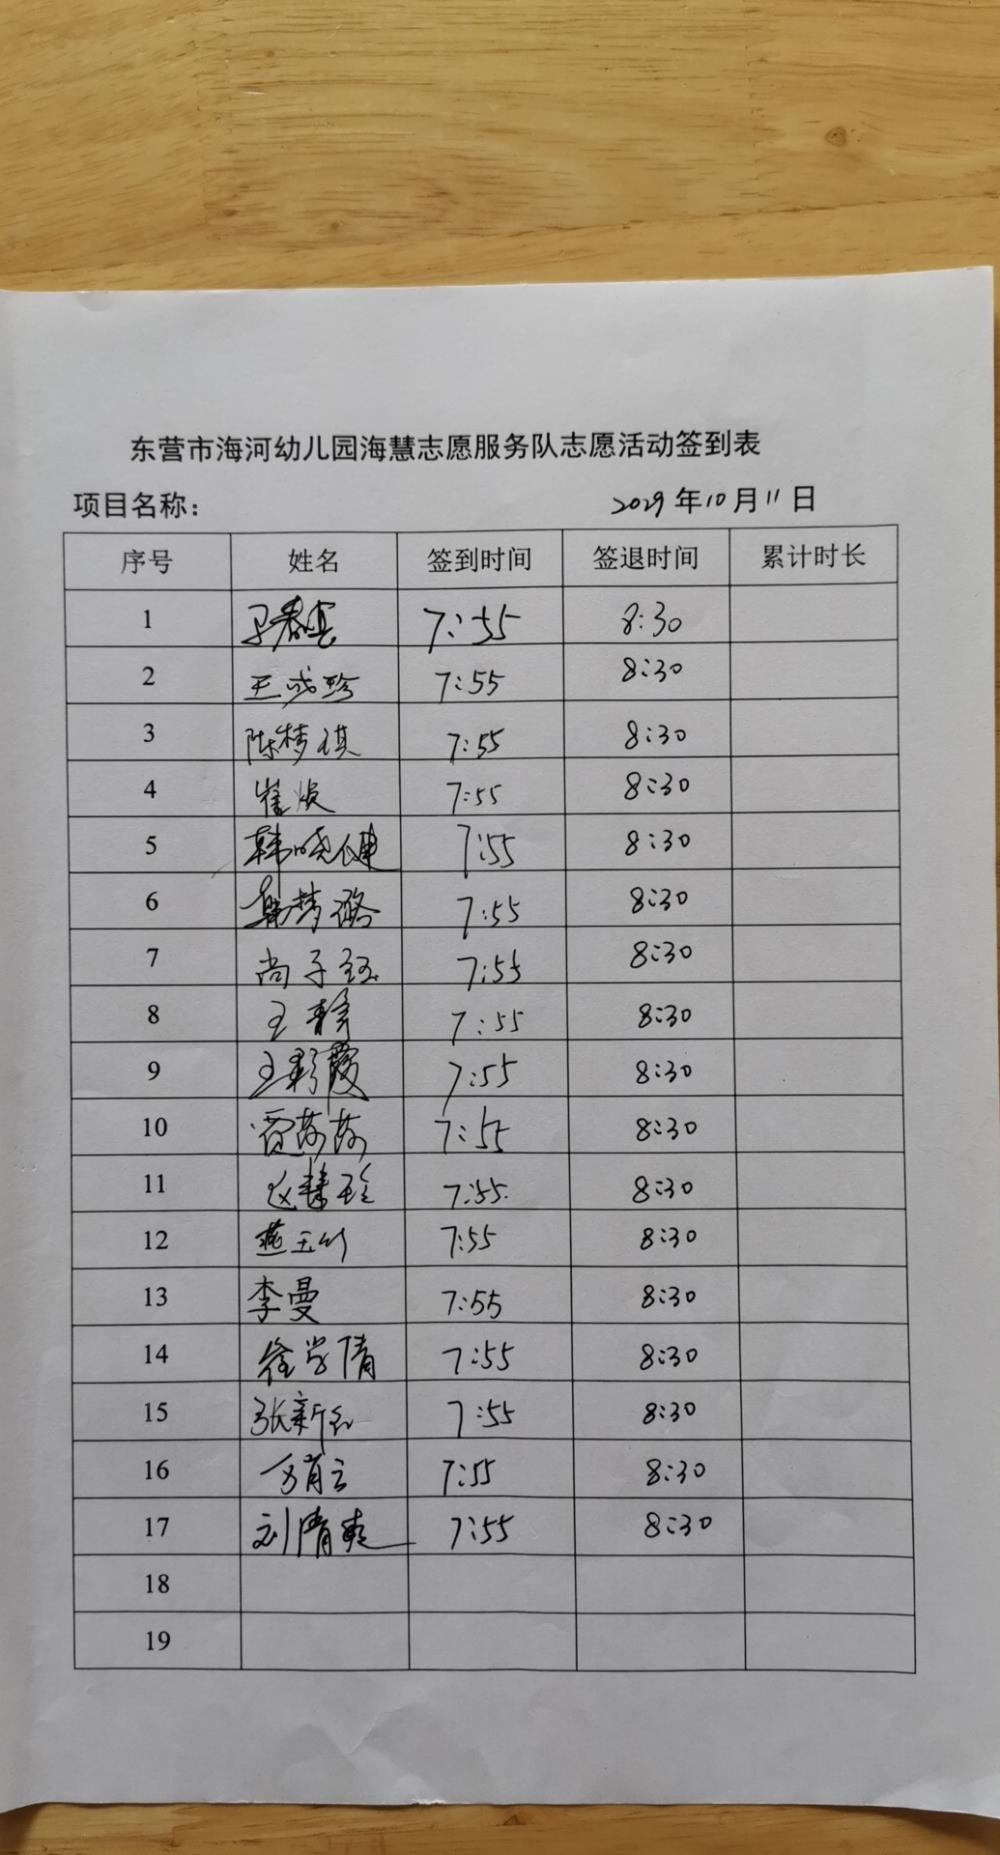 东营市海河幼儿园海慧志愿服务队志愿活动签到表
项目名称： 2029年10月11日
序号 姓名 签到时间 签退时间 累计时长
1 7:55 8:30
2 王成珍 7:55 8:30
3 陈梦琪 7:55 8:30
4 崔 7:55 8:30
5 韩晓健 7:55 8:30
6 梦璐 7:55 8:30
7 尚子钰 7:55 8:30
8 王静 7:55 8:30
9 王彩霞 7:55 8:30
10 贾莎莎 7:55 8:30
11 赵慧珍 7:55 8:30
12 燕玉竹 7:55 8:30
13 李曼 7:55 8:30
14 徐学倩 7:55 8:30
15 张新红 7:55 8:30
16 万肖云 7:55 8:30
17 刘倩爽 7:55 8:30
18
19